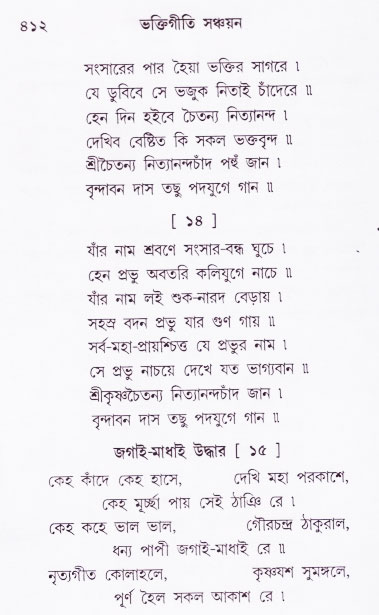 ৪১২ ভক্তিগীতি সঞ্চয়ন
সংসারের পার হৈয়া ভক্তির সাগরে ৷
যে ডুবিবে সে ভজুক নিতাই চাঁদেরে ॥
হেন দিন হইবে চৈতন্য নিত্যানন্দ ৷
দেখিব বেষ্টিত কি সকল ভক্তবৃন্দ ॥
শ্রীচৈতন্য নিত্যানন্দচাঁদ পহুঁ জান ৷
বৃন্দাবন দাস তছু পদযুগে গান ॥
[ ১৪ ]
যাঁর নাম শ্রবণে সংসার-বন্ধ ঘুচে ৷
হেন প্রভু অবতরি কলিযুগে নাচে ॥
যাঁর নাম লই শুক-নারদ বেড়ায় ৷
সহস্র বদন প্রভু যার গুণ গায় ॥
সর্ব-মহা-প্রায়শ্চিত্ত যে প্রভুর নাম ৷
সে প্রভু নাচয়ে দেখে যত ভাগ্যবান ॥
শ্রীকৃষ্ণচৈতন্য নিত্যানন্দচাঁদ জান ৷
বৃন্দাবন দাস তছু পদযুগে গান ॥
জগাই-মাধাই উদ্ধার [ ১৫ ]
কেহ কাঁদে কেহ হাসে, দেখি মহা পরকাশে,
কেহ মূর্চ্ছা পায় সেই ঠাঞি রে ৷
কেহ কহে ভাল ভাল, গৌরচন্দ্র ঠাকুরাল,
ধন্য পাপী জগাই-মাধাই রে ॥
নৃত্যগীত কোলাহলে, কৃষ্ণযশ সুমঙ্গলে,
পূর্ণ হৈল সকল আকাশ রে ৷